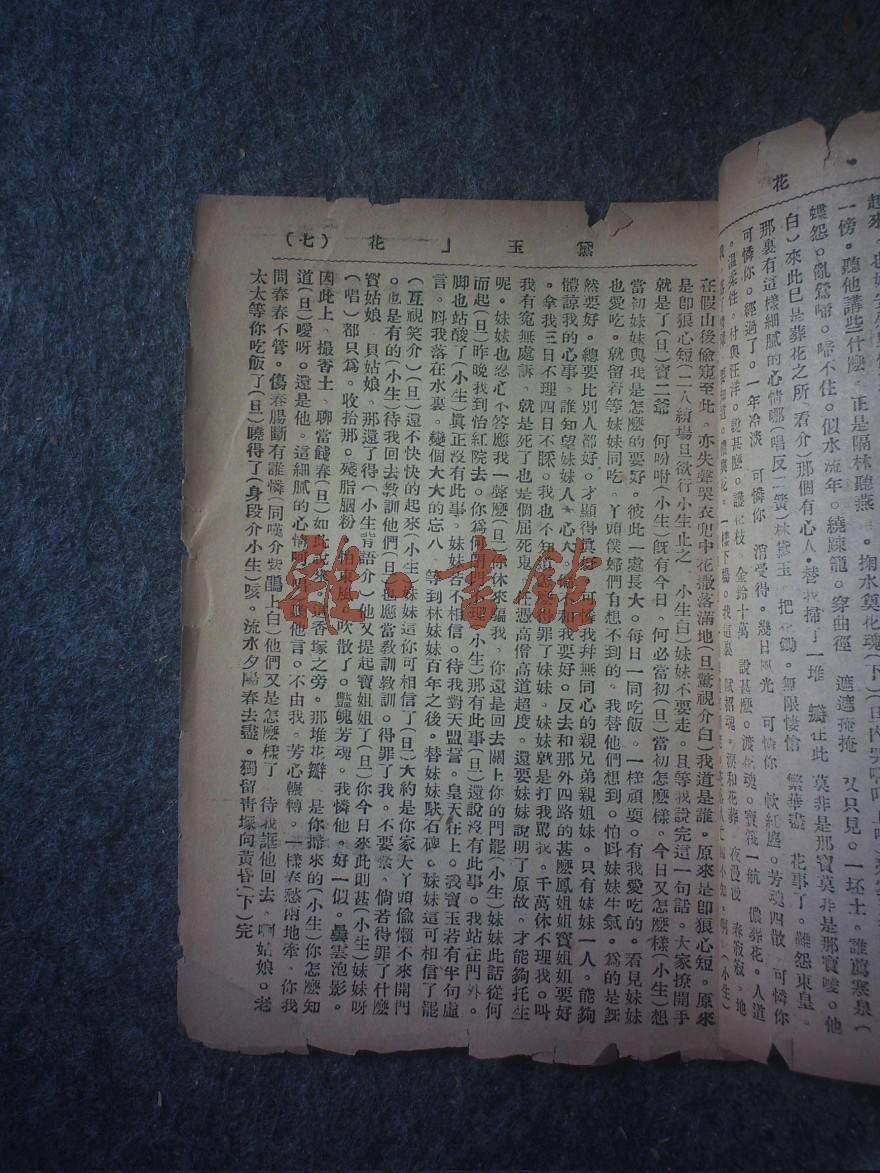 花
一傍。聽他講些什麼。正是隔林聽燕
蝶怨。亂鶯啼。啼不住。似水流年。繞疎籬。穿曲徑 遮遮掩掩 又只見。一坯土。
白)來此已是葬花之所(看介)那個有心人。替我掃了一堆 瓣在此 莫非是那寶莫非是那寶噯。他
那裏有這樣細膩的心情哪(唱反二簧)林黛玉 把花鋤。無限悽愴 繁華盡 花事了。 怨東皇。
可憐你。經過了。一年冷淡 可憐你 消受得。幾日風光 可憐你 軟紅塵。芳魂四散 可憐你
。溫柔性。付與汪洋。說甚麼。護花枝 金鈴十萬 說甚麼。渡花魂。寶筏一航 儂葬花。人道
黛玉 花(七)
在假山後偸窺至此。亦失聲哭衣兜中花撒落滿地(旦驚視介白)我道是誰。原來是卽狠心短。原來
是卽狠心短(二八續場旦欲行小生止之 小生白)妹妹不要走。且等我說完這一句話。大家撩開手
就是了(旦)寶二爺 何吩咐(小生)旣有今日。何必當初(旦)當初怎麼樣。今日又怎麼樣(小生)想
當初妹妹與我是怎麼的要好。彼此一處長大。每日一同吃飯。一樣頑耍。有我愛吃的。看見妹妹
也愛吃。就留着等妹妹同吃。丫頭僕婦們有想不到的。我替他們想到。怕呌妹妹生氣。爲的是旣
然要好。總要比別人都好。才顯得眞 可憐我幷無同心的親兄弟親姐妹。只有妹妹一人。能夠
體諒我的心事。誰知望妹妹人 心大。 和我要好。反去和那外四路的甚麼鳳姐姐寶姐姐要好
。拿我三日不理四日不睬。我也不知道 得罪了妹妹。妹妹就是打我罵我。千萬休不理我。呌
我有寃無處訴。就是死了也是個屈死鬼。任憑高僧高道超度。還要妹妹說明了原故。才能夠托生
呢。妹妹也忍心不答應我一聲麼(旦)你休來騙我。你還是回去關上你的門罷(小生)妹妹此話從何
而起(旦)昨晚我到怡紅院去。你爲何閉門不理(小生)那有此事(旦)還說沒有此事。我站在門外。
脚也站酸了(小生)眞正沒有此事。妹妹若不相信。待我對天盟誓。皇天在上。我寶玉若有半句虛
言。呌我落在水裏。變個大大的忘八 等到林妹妹百年之後。替妹妹䭾石碑。妹妹這可相信了罷
(互視笑介)(旦)還不快快的起來(小生)妹妹這你可相信了(旦)大約是你家大丫頭偸懶不來開門
。也是有的(小生)待我回去敎訓他們(旦)也應當敎訓敎訓。得罪了我。不要緊。倘若得罪了什麼
寶姑娘 貝姑娘。那還了得(小生背語介)他又提起寶姐姐了(旦)你今日來此則甚(小生)妹妹呀
(唱)都只爲。收拾那。殘脂膩粉 怕東風。吹散了。豔魄芳魂。我憐他。好一似。曇雲泡影。
因此上。撮香土。聊當餞春(旦)如此說來。這香塚之旁。那堆花瓣 是你掃來的(小生)你怎麼知
道(旦)噯呀。還是他。這細膩的心情 他言。不由我。芳心輾轉。一樣春愁兩地牽。你我
問春春不管。傷春腸斷有誰憐(同嘆介紫鵑上白)他們又是怎麼樣了 待我誆他回去。啊姑娘。老
太太等你吃飯了(旦)曉得了(身段介小生)咳。流水夕陽春去盡。獨留靑塚向黃昏(下)完
雜·書館